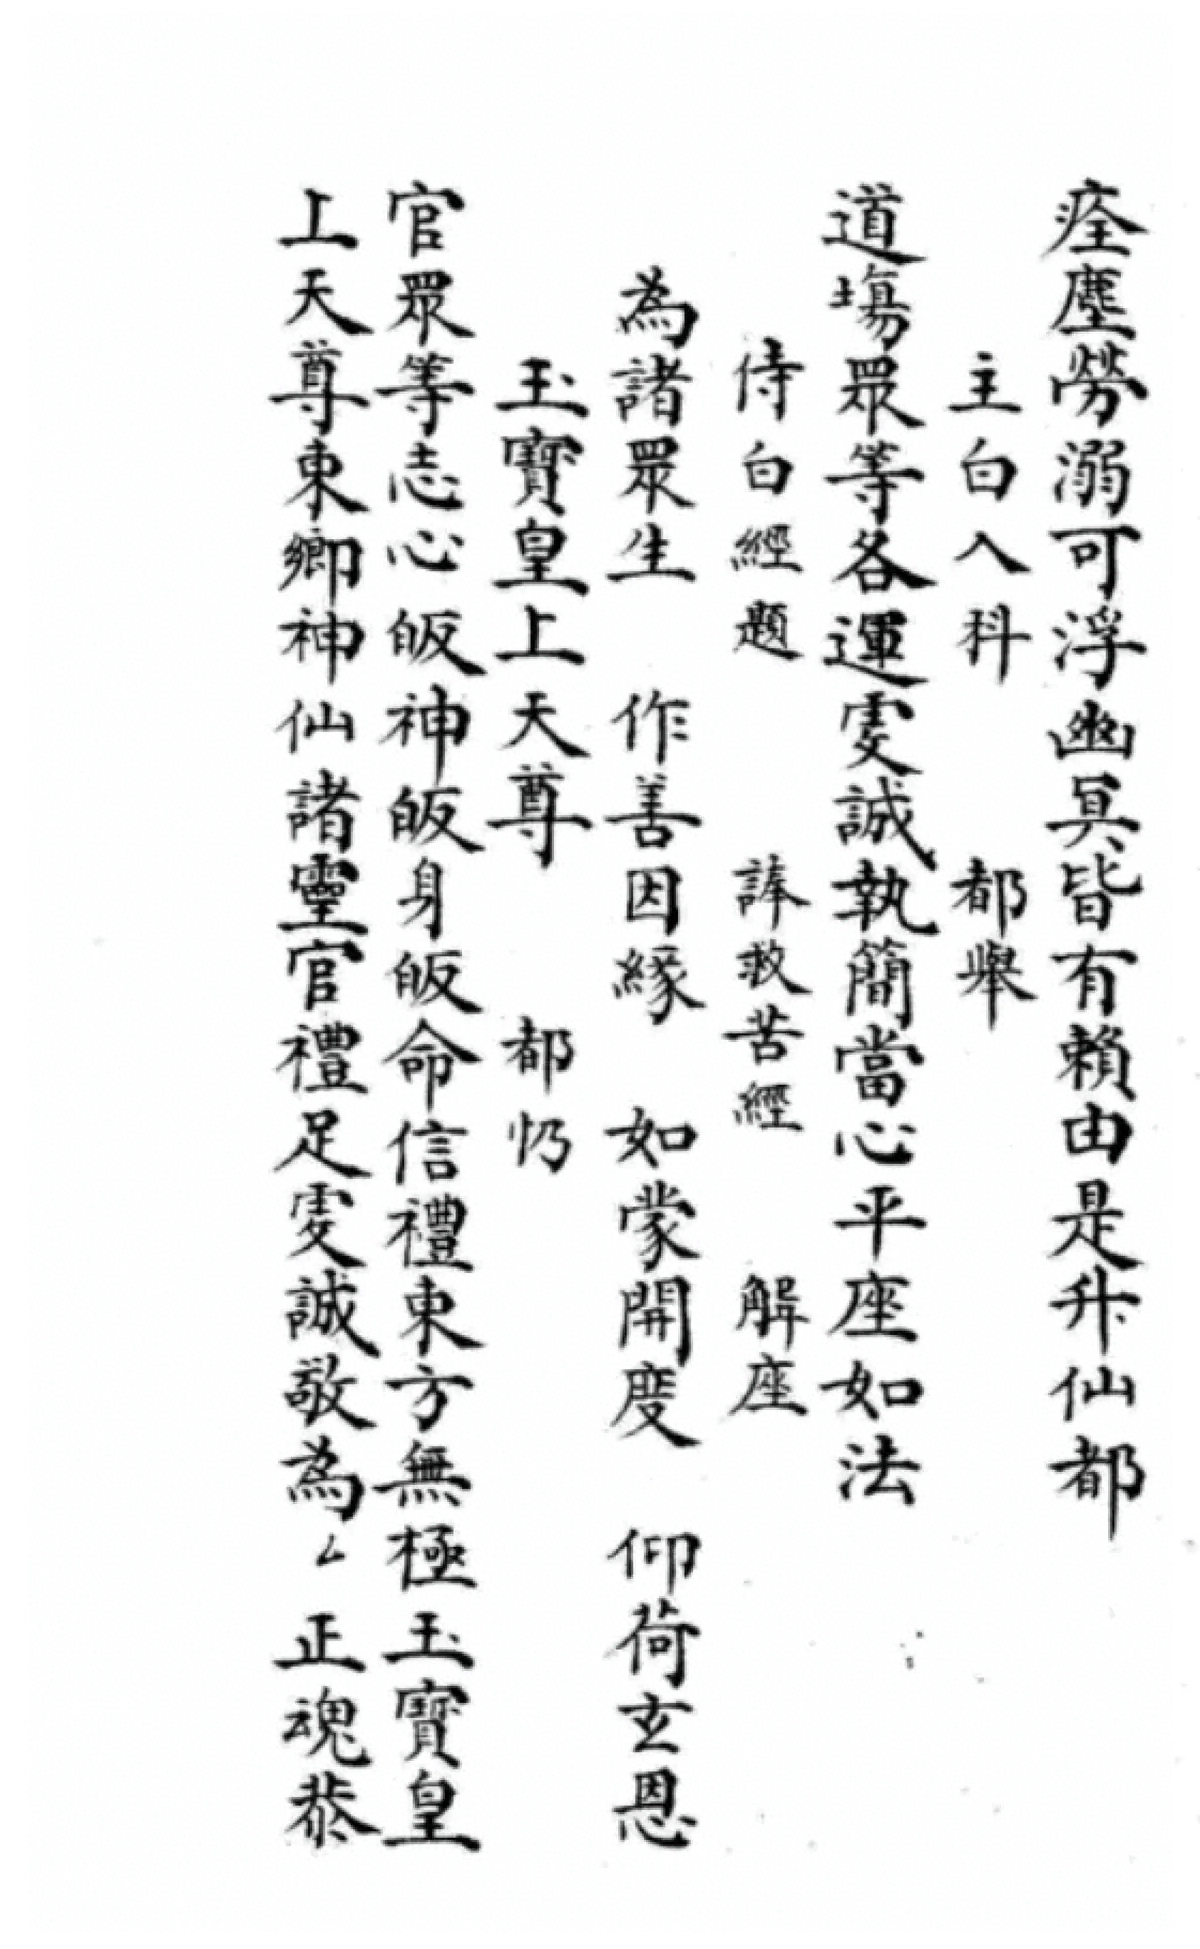 痊塵勞溺可浮幽冥皆有賴由是升仙都
主白入科　都舉
道塲眾等各運虔誠執簡當心平座如法
侍白經題　諱救苦經　解座
為諸眾生　作善因緣　如蒙開度　仰荷玄恩
玉寶皇上天尊　都仍
官眾等志心皈神皈身皈命信禮東方無極玉寶皇
上天尊東鄉神仙諸靈官禮足虔誠敬為ㄥ正魂恭